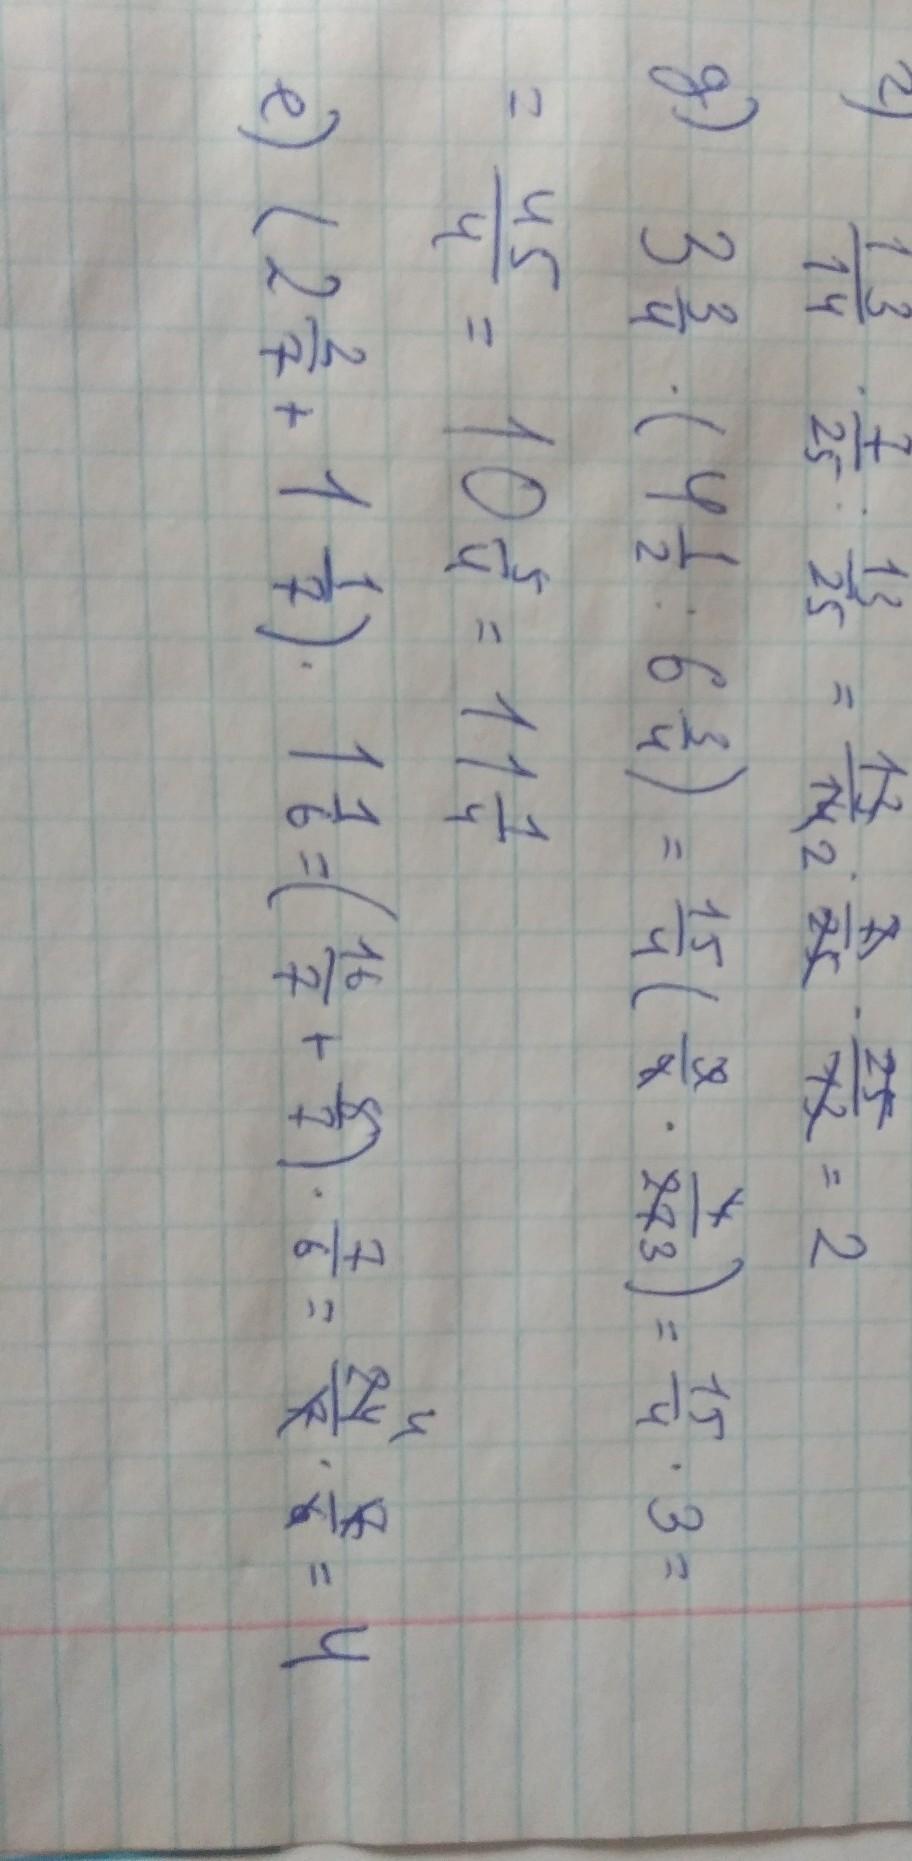 г) 13/14 · 7/25 : 13/25 = 13/14 2 · 7/25 · 25/13 = 2
д) 3 3/4 · (4 1/2 : 6 3/4) = 15/4 ( 9/2 · 4/27 3 ) = 15/4 · 3 =
= 45/4 = 10 5/4 = 11 1/4
е) (2 2/7 + 1 1/7) · 1 1/6 = ( 16/7 + 8/7 ) · 7/6 = 24 4/7 · 7/6 = 4